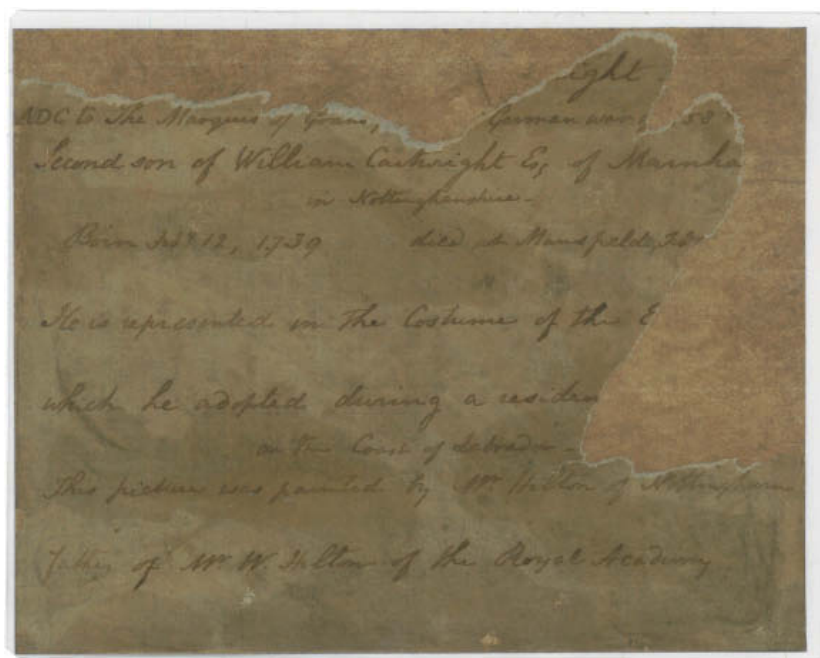 ight.
ADC to The Marquis of German war
Second son of William Cartwright Esq of Marnha
in Nottinghamshire -
Born 12, 1739 died at Mansfield,
He is represented in the Costume of the E
which he adopted during a residen
on the Coast of Labrador -
This picture was painted by Mr Hilton of Nottingham
father of Mr W. Hilton of the Royal Academy